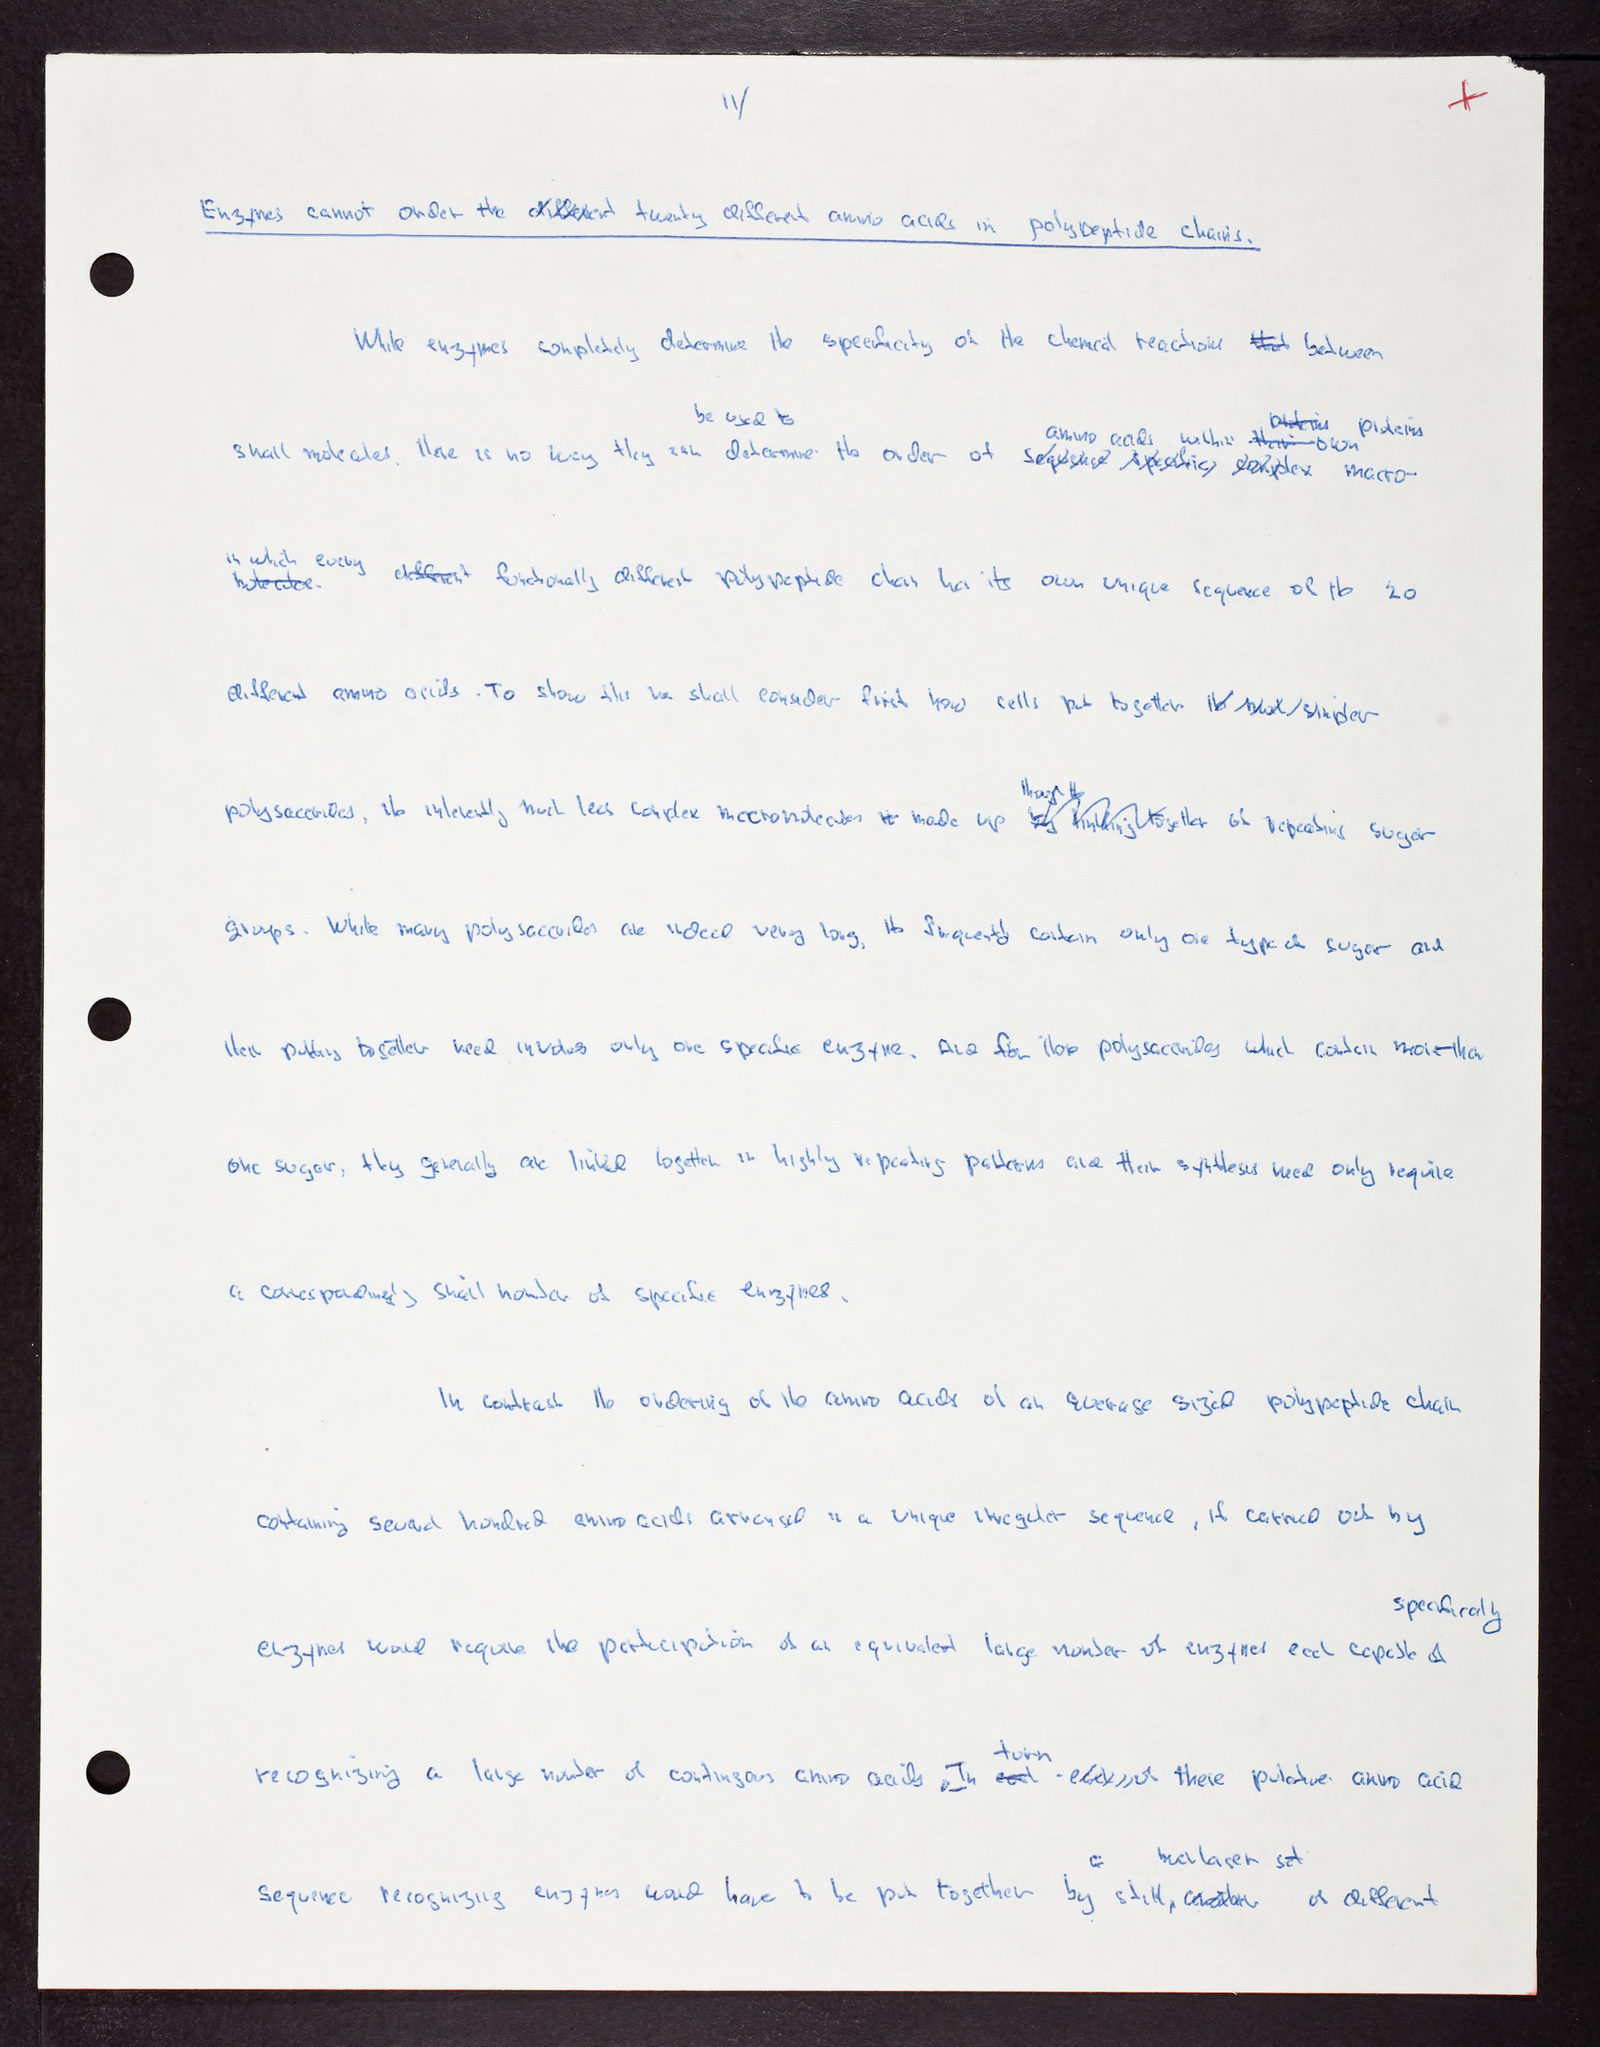 11/
Enzymes cannot order the different twenty different amino acids in polypeptide chains.
While enzymes completely determine the specificity of the chemical reactions that between
be used to
amino acids within their own proteins proteins
small molecules, there is no way they can determine the order of sequence specific complex macro-
in which every
molecules. different functionally different polypeptide chain has its own unique sequence of the 20
different amino acids. To show this we shall consider first how cells put together the much simpler
though the
polysaccarides, the inherently much less complex macromolecules made up by linking together of repeating sugar
groups. While many polysaccarides are indeed very long, the frequently contain only one type of sugar and
their putting together need involves only one specific enzyme. And for those polysaccarides which contain more than
one sugar, they generally are linked together in highly repeating patterns and their synthesis need only require
a correspondingly small number of specific enzymes.
In contrast the ordering of the amino acids of an average sized polypeptide chain
containing several hundred amino acids arranged in a unique irregular sequence, if carried out by
specifically
enzymes would require the participation of an equivalent large number of enzymes each capable of
turn
recognizing a large number of contingous amino acids. In each of these putative amino acid
a much larger set
sequence recognizing enzymes would have to be put together by still, another of different